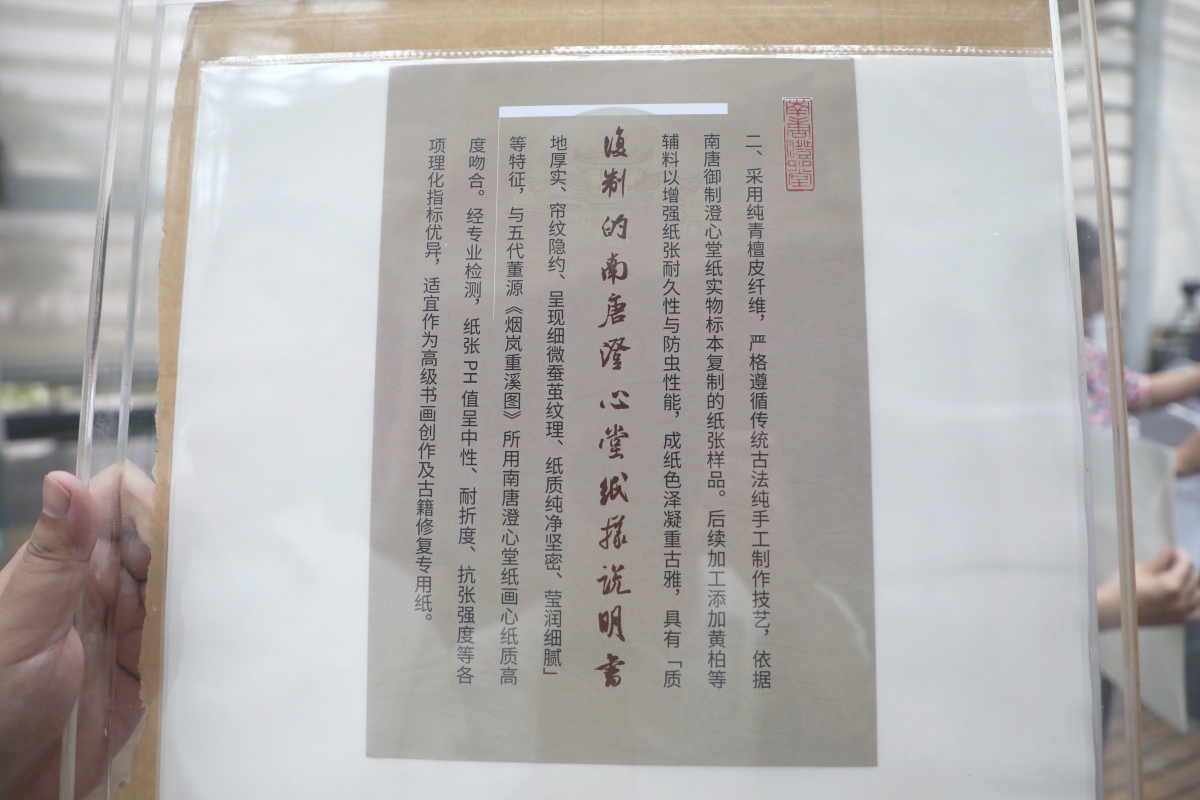 南唐澄心堂
二、采用纯青檀皮纤维，严格遵循传统古法纯手工制作技艺，依据
南唐御制澄心堂纸实物标本复制的纸张样品。后续加工添加黄柏等
辅料以增强纸张耐久性与防虫性能，成纸色泽凝重古雅，具有「质
復制的南唐澄心堂纸樣说明書
地厚实、帘纹隐约、呈现细微蚕茧纹理、纸质纯净坚密、莹润细腻」
等特征，与五代董源《烟岚重溪图》所用南唐澄心堂纸画心纸质高
度吻合。经专业检测，纸张 PH 值呈中性、耐折度、抗张强度等各
项理化指标优异，适宜作为高级书画创作及古籍修复专用纸。